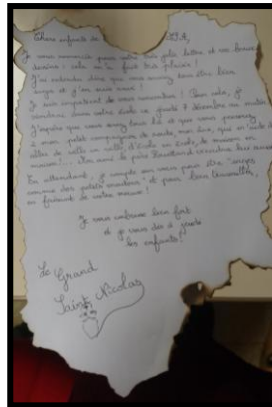 Chers enfants de
Je vous remercie pour votre très jolie lettre et vos beaux
dessins : cela m'a fait très plaisir !
J'ai entendu dire que vous aviez tous été bien
sages et j'en suis ravi !
Je suis impatient de vous rencontrer ! Pour cela, je
viendrai dans votre école ce jeudi 7 décembre au matin.
J'espère que vous serez tous là et que vous penserez
à mon petit compagnon de route, mon âne, qui m'aide à
aller de ville en ville, d'école en école, de maison en
maison !... Mon ami le père Fouettard viendra lui aussi.
En attendant, je compte sur vous pour être sages
comme des petits moutons et pour bien travailler,
en faisant de votre mieux !
Je vous embrasse bien fort
et je vous dis à jeudi
les enfants !
Le Grand
Saint Nicolas